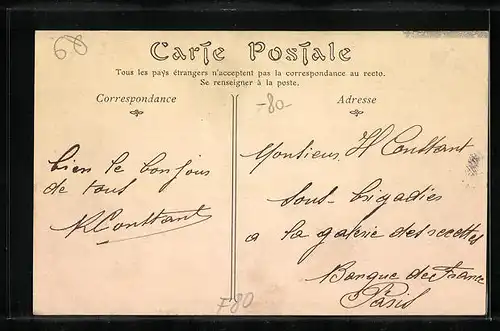 60
Carte Postale
Tous les pays étrangers n'acceptent pas la correspondance au recto.
Se renseigner à la poste.
Correspondance
-80-
Adresse
bien le bonjour
de tous
Constant
Monsieur H Constant
Sous-brigadier
a la galerie des recettes
Banque de France
Paris
F80